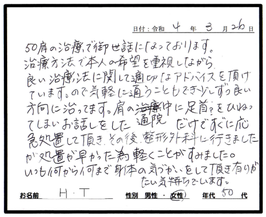 日付: 令和 4 年 3 月 26 日
50肩の治療で御世話になっております。
治療方法で本人の希望を重視しながら
良い治療法に関して適切なアドバイスを頂け
ています。ので気軽に通うこともでき少しずつ良い
方向に治ってます。肩の治療中に足首をひねっ
てしまいお話しをした 通院 だけですぐに応
急処置して頂き、その後、整形外科に行きました
が処置が早かった為軽くことがすみました。
いつも何から何まで身体の気づかいをして頂き有りが
たい気持ちでいます。
お名前 H・T 性別 男性・女性 年代 50 代